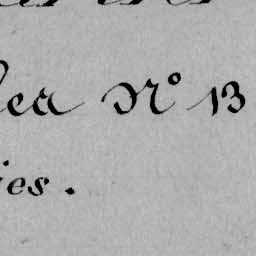 lea Nº 13
ies.